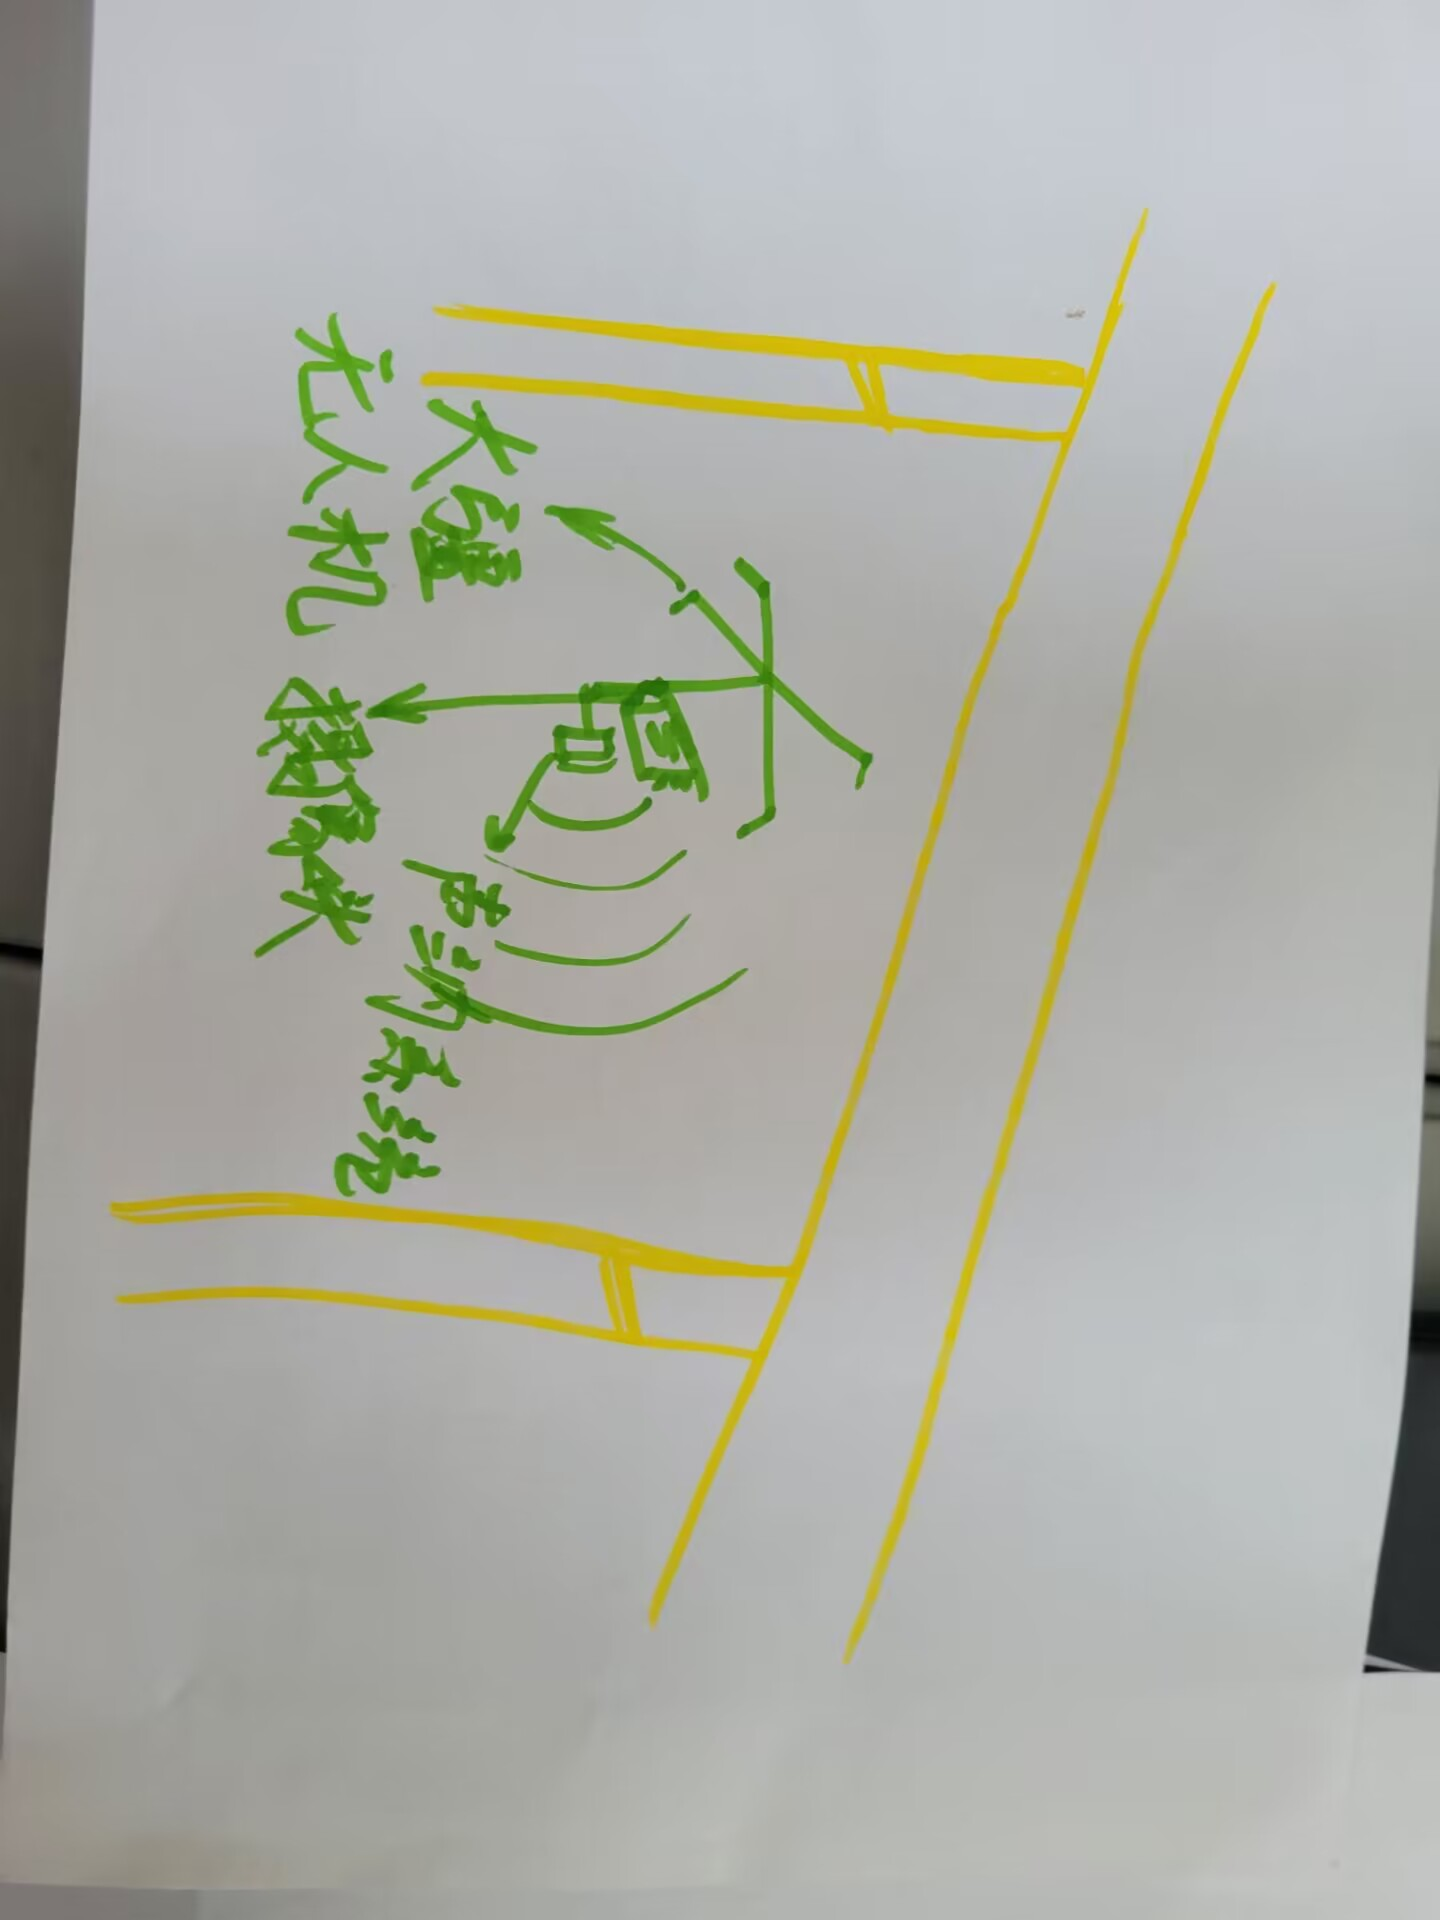 大疆
无人机
摄像头
声纳系统